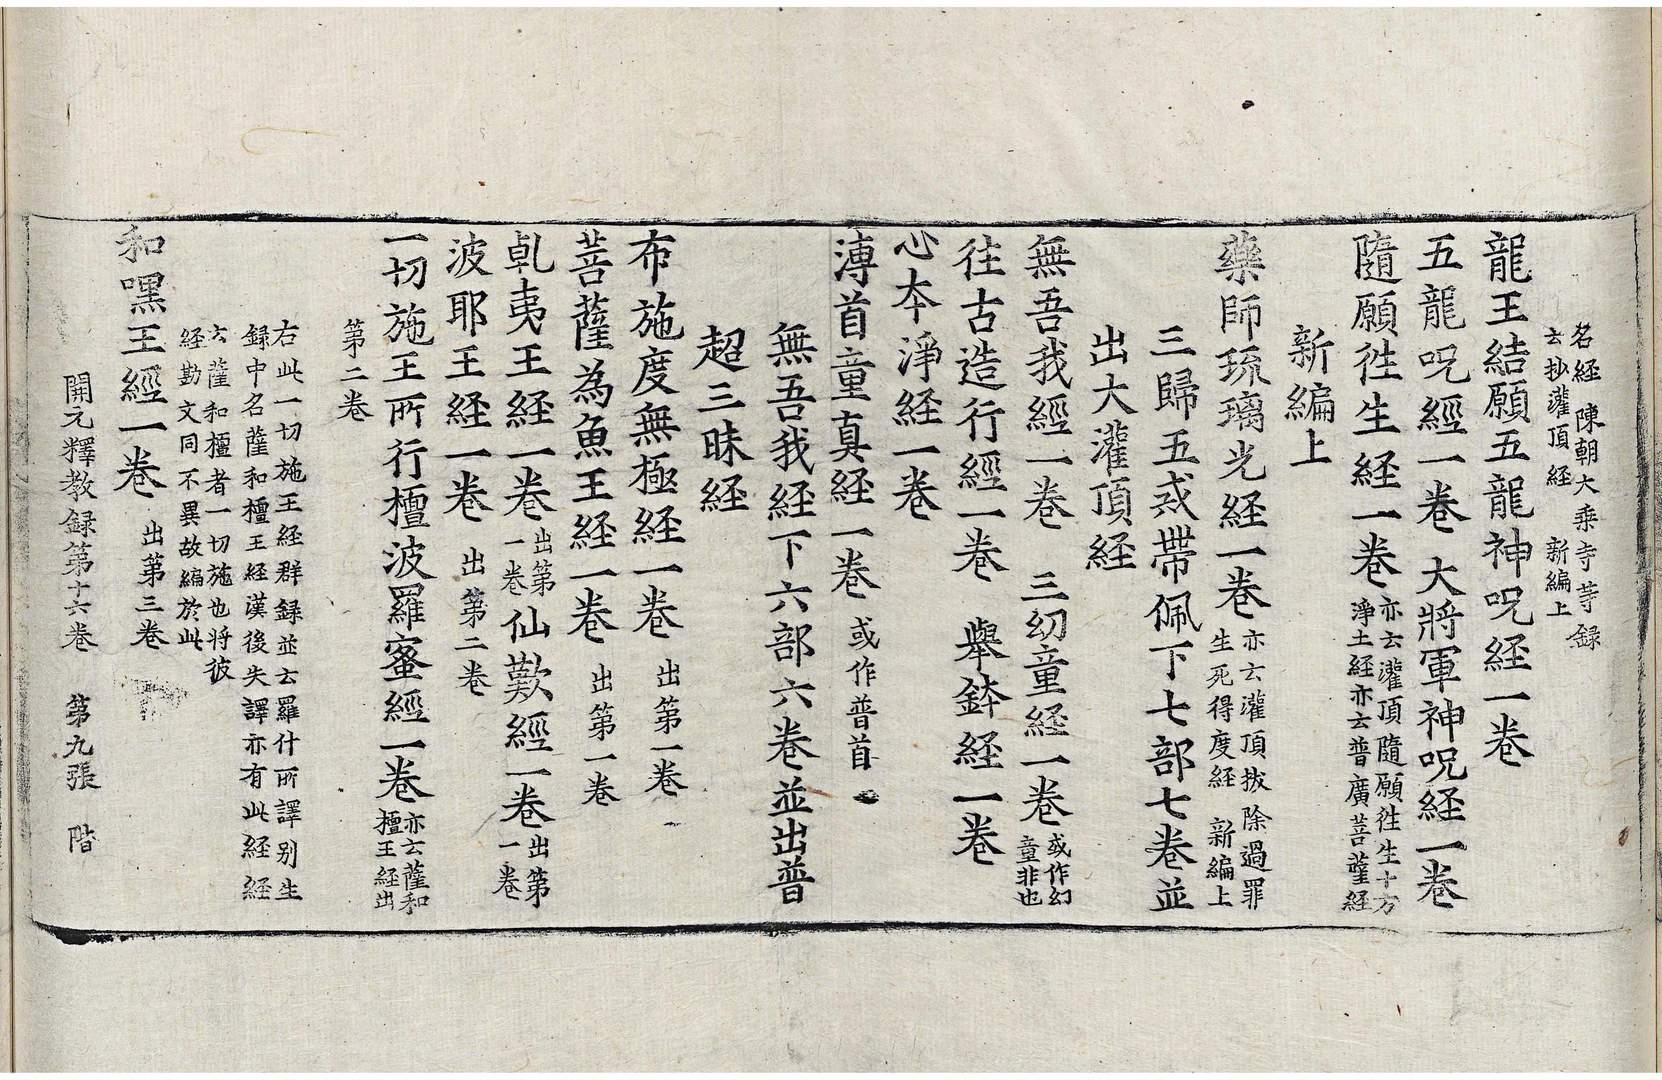 名経 陳朝大乘寺䓁録
云抄灌頂経 新編上
龍王結願五龍神呪経一巻
五龍呪經一巻 大將軍神呪経一巻
隨願徃生経一巻 亦云灌頂隨願徃生十方
淨土経亦云普廣菩薩経
新編上
藥師琉璃光経一巻 亦云灌頂拔除過罪
生死得度経 新編上
三歸五戒帶佩下七部七巻並
出大灌頂経
無吾我經一巻 三幼童経一巻 或作幻
童非也
徃古造行經一巻 舉鉢経一巻
心夲淨経一巻
溥首童真経一巻 或作普首
無吾我経下六部六巻並出普
超三昧経
布施度無極経一巻 出第一巻
菩薩為魚王経一巻 出第一巻
乹夷王経一巻 出第
一巻 仙歎經一巻 出第
一巻
波耶王経一巻 出第二巻
一切施王所行檀波羅蜜經一巻 亦云薩和
檀王経出
第二巻
右此一切施王経群録並云羅什所譯別生
録中名薩和檀王経漢後失譯亦有此経経
云薩和檀者一切施也将彼
経勘文同不異故編於此
和嘿王經一巻 出第三巻
開元釋教録第十六巻 第九張 階